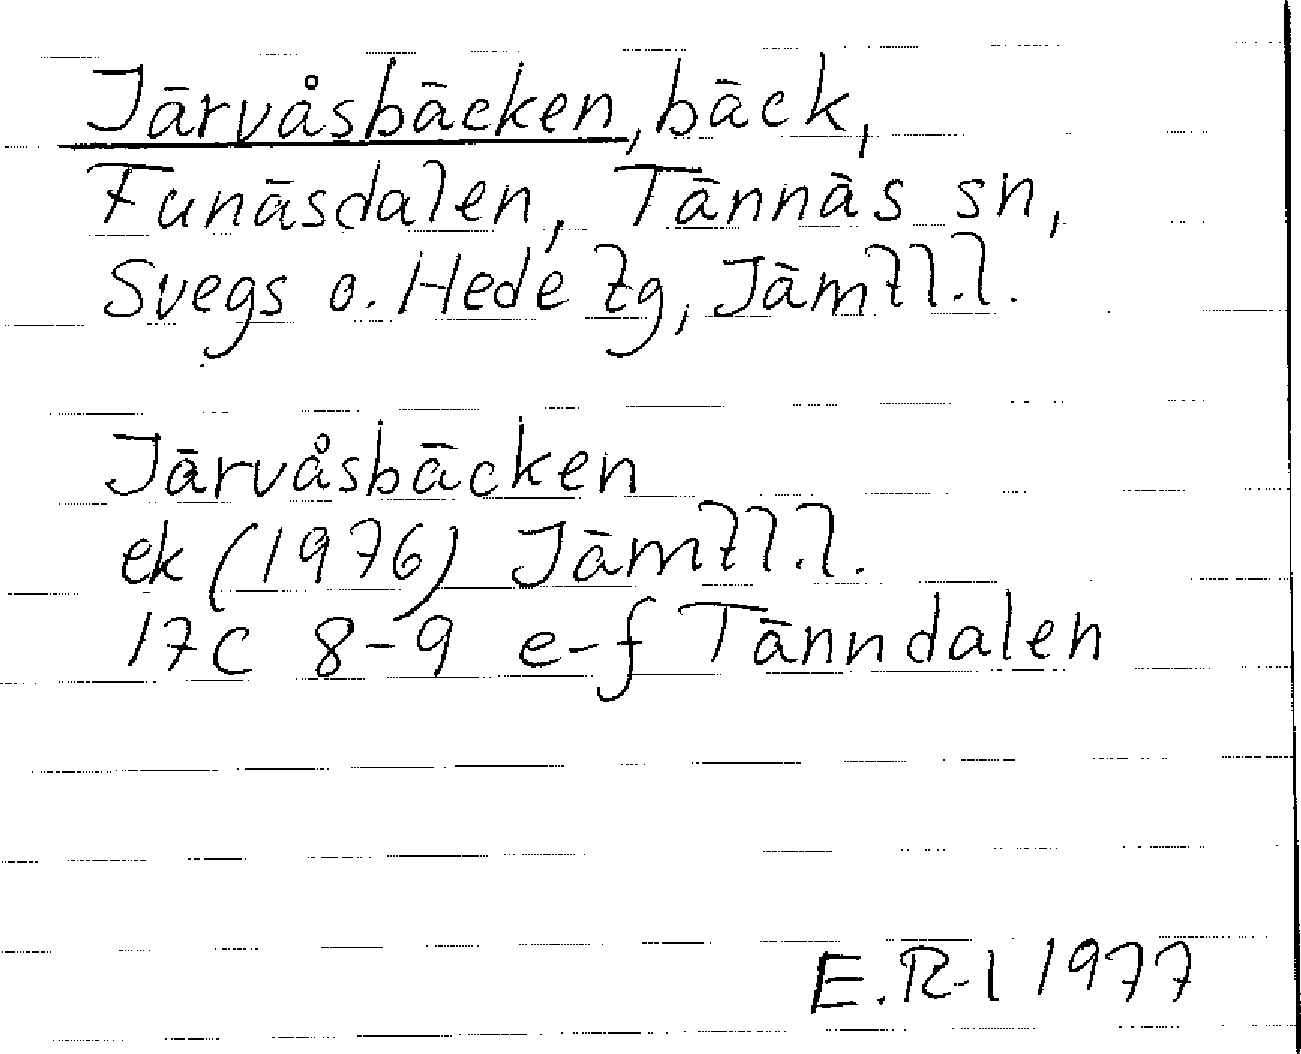 Järvåsbäcken, bäck,
Funäsdalen, Tännäs sn,
Svegs o. Hede tg, Jämtl.l.
Järvåsbäcken
ek (1976) Jämtl.l.
17C 8-9 e-f Tänndalen
E.R-l 1977